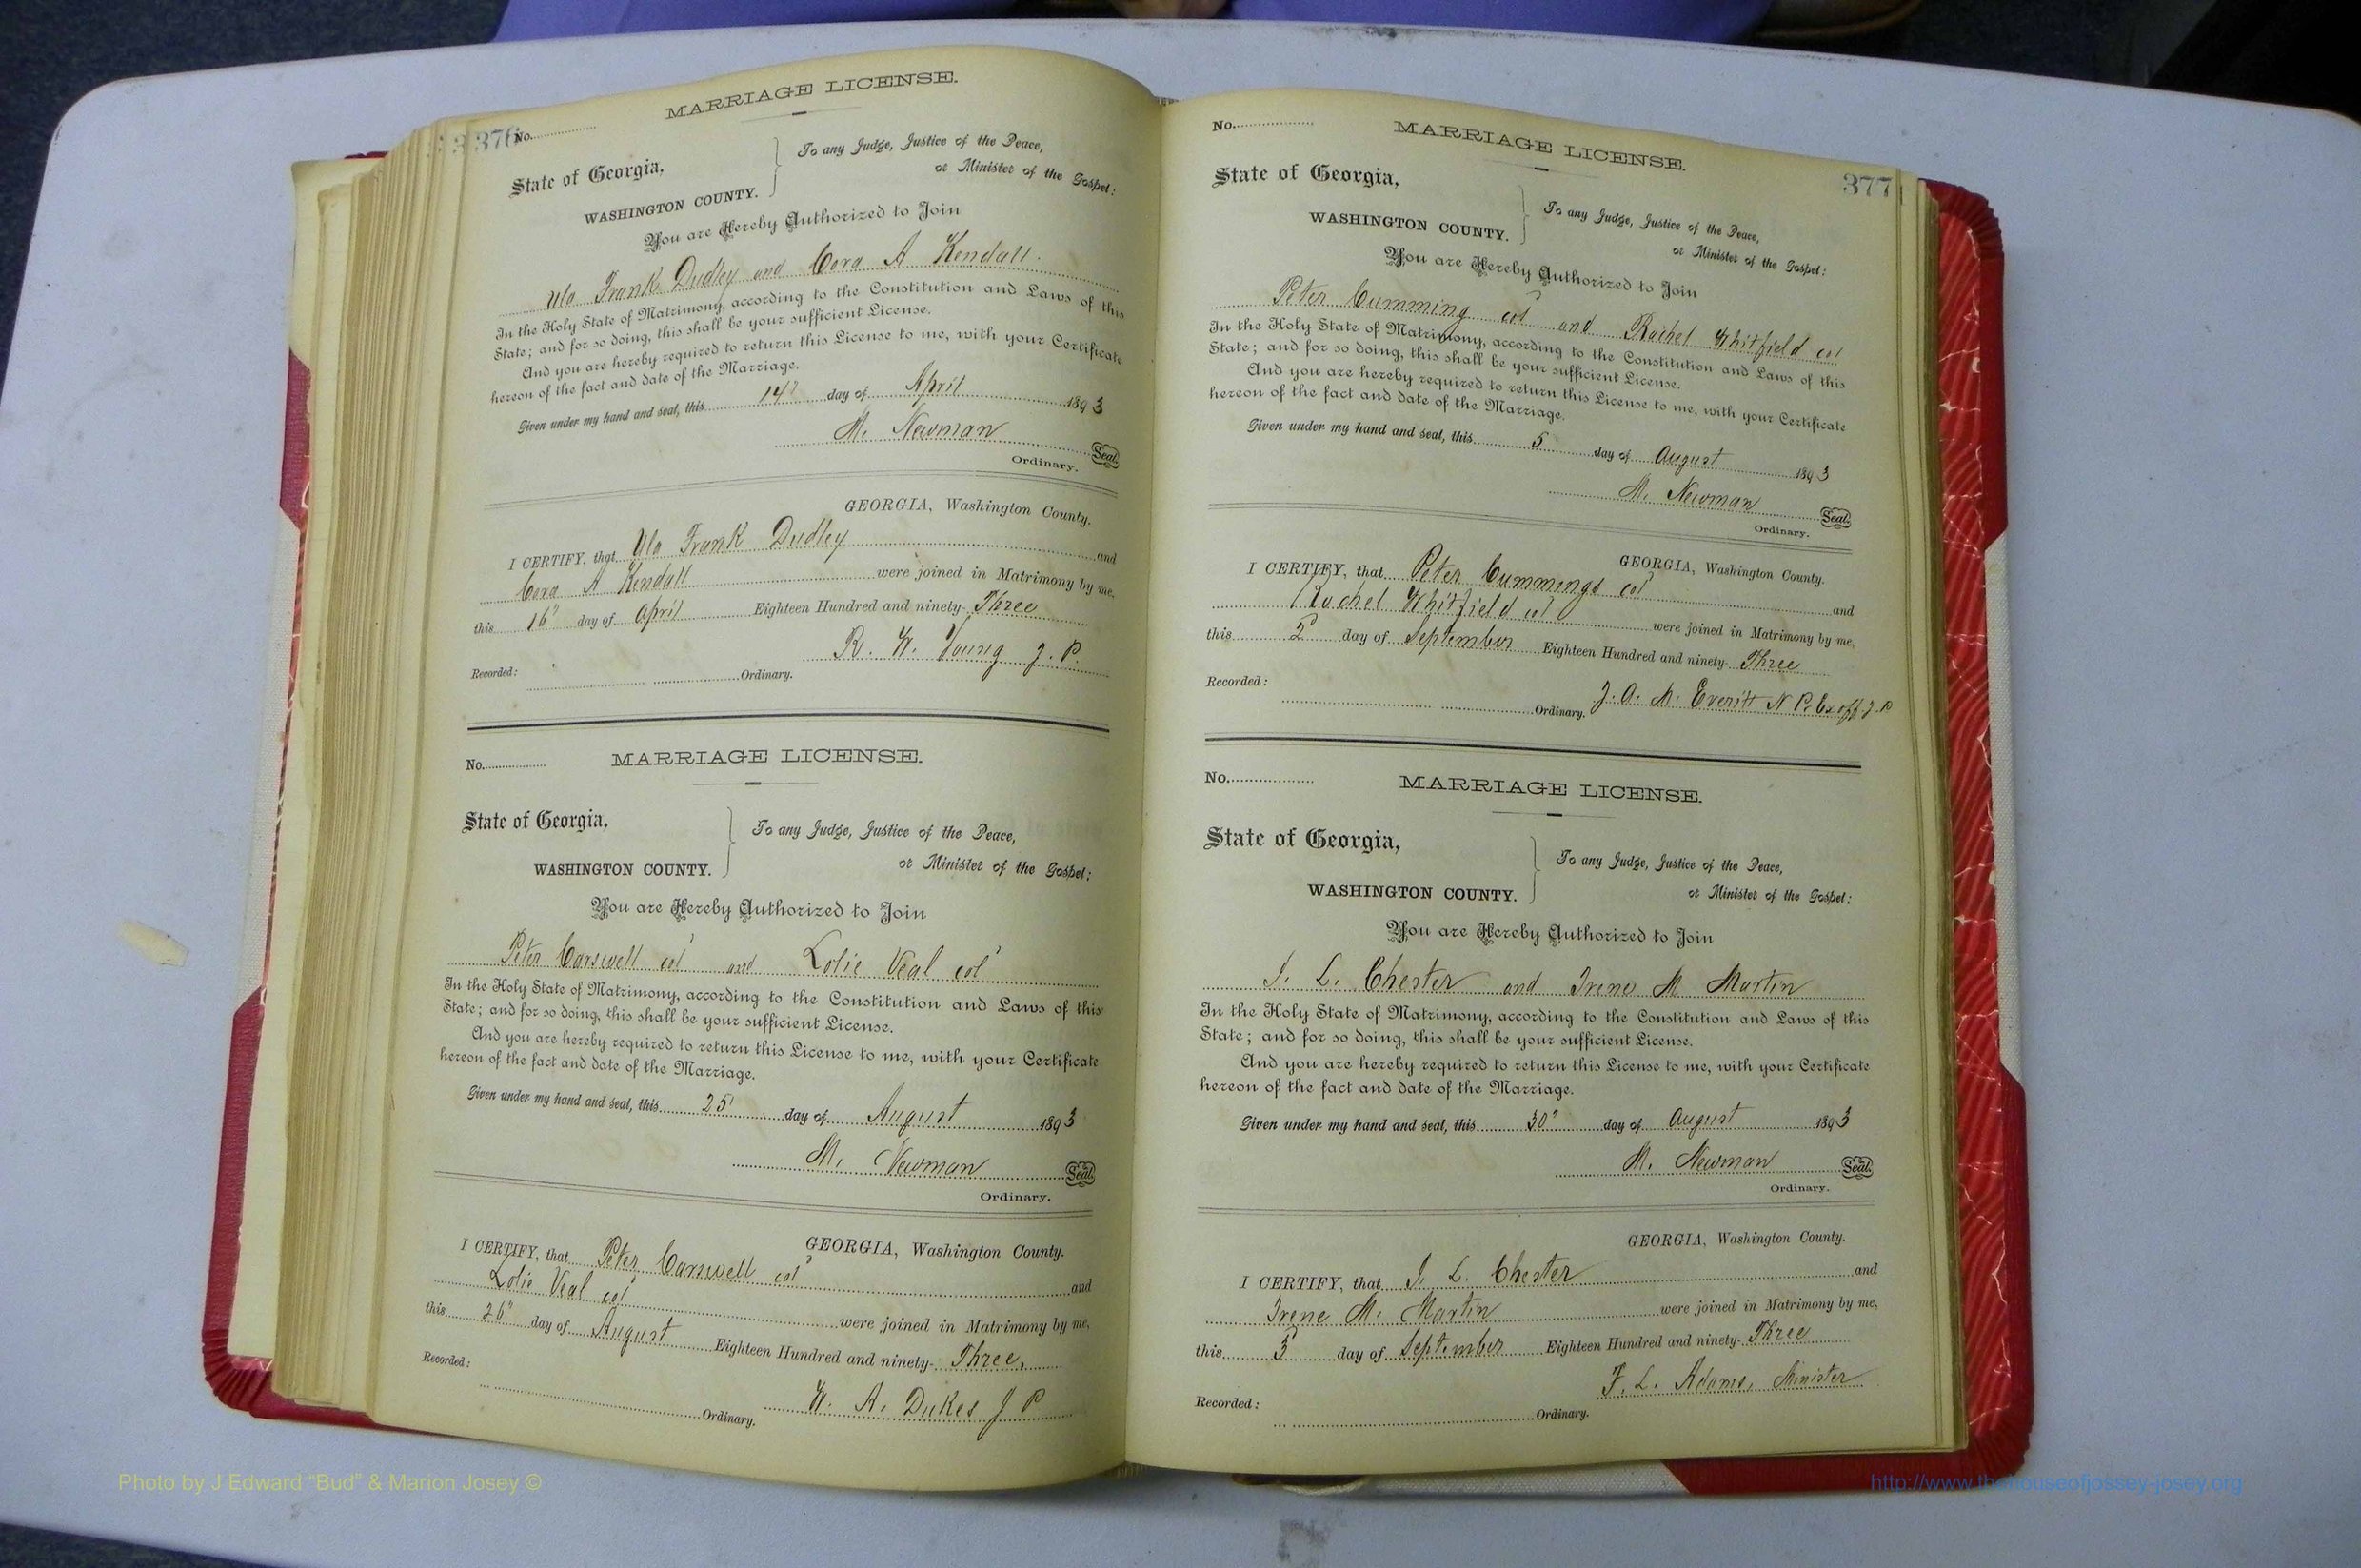 376
No.
MARRIAGE LICENSE.
State of Georgia,
WASHINGTON COUNTY.
To any Judge, Justice of the Peace,
or Minister of the Gospel:
You are Hereby Authorized to Join
Frank Dudley and Cora A Kendall.
In the Holy State of Matrimony, according to the Constitution and Laws of this
State; and for so doing, this shall be your sufficient License.
And you are hereby required to return this License to me, with your Certificate
hereon of the fact and date of the Marriage.
Given under my hand and seal, this 14" day of April 1893
M. Newman Seal.
Ordinary.
GEORGIA, Washington County.
I CERTIFY, that Frank Dudley and
Cora A Kendall were joined in Matrimony by me,
this 16" day of April Eighteen Hundred and ninety-Three
R. W. Young J. P.
Recorded: Ordinary.
No.
MARRIAGE LICENSE.
State of Georgia,
WASHINGTON COUNTY.
To any Judge, Justice of the Peace,
or Minister of the Gospel:
You are Hereby Authorized to Join
Peter Carswell col and Lolie Veal col
In the Holy State of Matrimony, according to the Constitution and Laws of this
State; and for so doing, this shall be your sufficient License.
And you are hereby required to return this License to me, with your Certificate
hereon of the fact and date of the Marriage.
Given under my hand and seal, this 25 day of August 1893
M. Newman Seal.
Ordinary.
GEORGIA, Washington County.
I CERTIFY, that Peter Carswell col and
Lolie Veal col were joined in Matrimony by me,
this 26" day of August Eighteen Hundred and ninety-Three,
W. A. Dukes J P
Recorded: Ordinary.
No.
MARRIAGE LICENSE.
377
State of Georgia,
WASHINGTON COUNTY.
To any Judge, Justice of the Peace,
or Minister of the Gospel:
You are Hereby Authorized to Join
Peter Cumming col and Rachel Whitfield col
In the Holy State of Matrimony, according to the Constitution and Laws of this
State; and for so doing, this shall be your sufficient License.
And you are hereby required to return this License to me, with your Certificate
hereon of the fact and date of the Marriage.
Given under my hand and seal, this 5 day of August 1893
M. Newman Seal.
Ordinary.
GEORGIA, Washington County.
I CERTIFY, that Peter Cummings col and
Rachel Whitfield col were joined in Matrimony by me,
this day of September Eighteen Hundred and ninety-Three
J. A. M. Everitt N P. Ex off J. P
Recorded: Ordinary.
No.
MARRIAGE LICENSE.
State of Georgia,
WASHINGTON COUNTY.
To any Judge, Justice of the Peace,
or Minister of the Gospel:
You are Hereby Authorized to Join
L. Chester and Irene M Martin
In the Holy State of Matrimony, according to the Constitution and Laws of this
State; and for so doing, this shall be your sufficient License.
And you are hereby required to return this License to me, with your Certificate
hereon of the fact and date of the Marriage.
Given under my hand and seal, this 30" day of August 1893
M. Newman Seal.
Ordinary.
GEORGIA, Washington County.
I CERTIFY, that L. Chester and
Irene M. Martin were joined in Matrimony by me,
this 3 day of September Eighteen Hundred and ninety-Three
F. L. Adams, Minister
Recorded: Ordinary.
Photo by J Edward “Bud” & Marion Josey ©
http://www.thehouseofjossey-josey.org